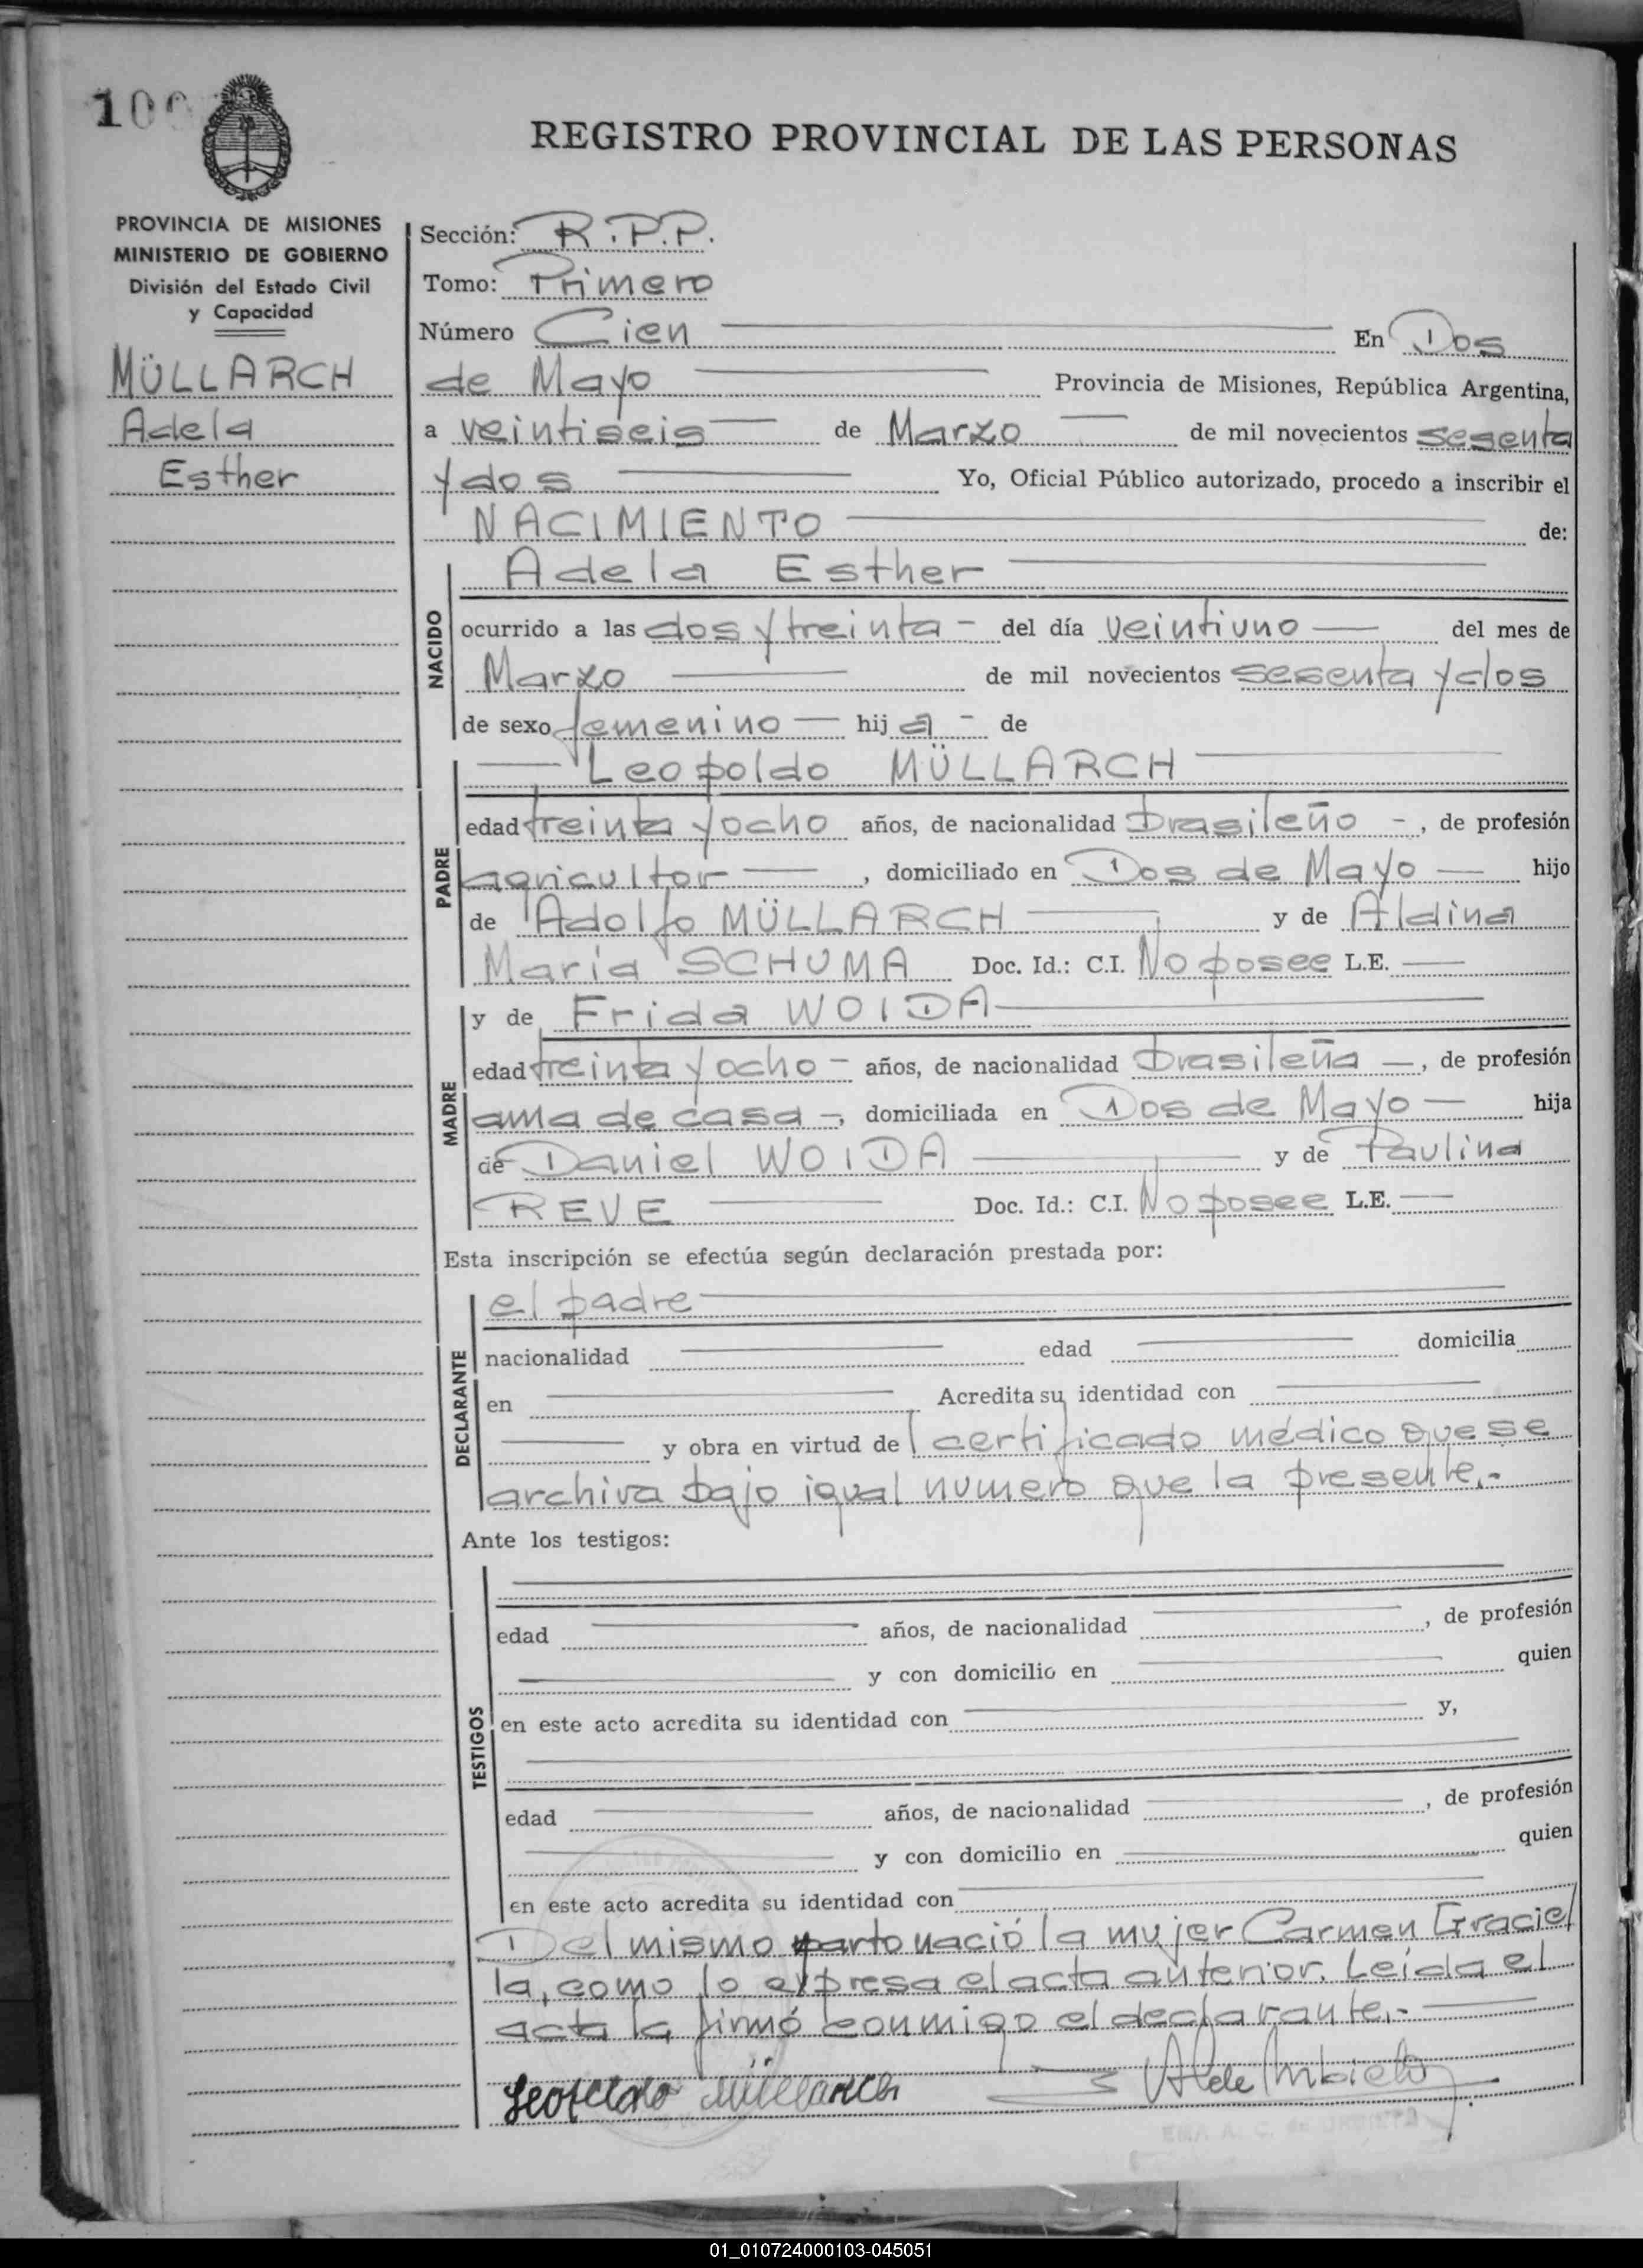 100
REGISTRO PROVINCIAL DE LAS PERSONAS
PROVINCIA DE MISIONES
MINISTERIO DE GOBIERNO
División del Estado Civil
y Capacidad
MÜLLARCH
Adela
Esther
Sección: R.P.P.
Tomo: Primero
Número Cien En Dos
de Mayo Provincia de Misiones, República Argentina,
a veintiseis de Marzo de mil novecientos sesenta
y dos Yo, Oficial Público autorizado, procedo a inscribir el
NACIMIENTO de:
NACIDO
Adela Esther
ocurrido a las dos y treinta - del día veintiuno del mes de
Marzo de mil novecientos sesenta y dos
de sexo femenino hija - de
PADRE
Leopoldo MÜLLARCH
edad treinta y ocho años, de nacionalidad brasileño -, de profesión
agricultor, domiciliado en Dos de Mayo hijo
de Adolfo MÜLLARCH y de Aldina
María SCHUMA Doc. Id.: C.I. No posee L.E.
MADRE
y de Frida WOIDA
edad treinta y ocho - años, de nacionalidad brasileña -, de profesión
ama de casa -, domiciliada en Dos de Mayo hija
de Daniel WOIDA y de Paulina
REVE Doc. Id.: C.I. No posee L.E.
Esta inscripción se efectúa según declaración prestada por:
DECLARANTE
el padre
nacionalidad edad domicilia
en Acredita su identidad con
y obra en virtud del certificado médico que se
archiva bajo igual numero que la presente.-
Ante los testigos:
TESTIGOS
edad años, de nacionalidad , de profesión
y con domicilio en quien
en este acto acredita su identidad con y,
edad años, de nacionalidad , de profesión
y con domicilio en quien
en este acto acredita su identidad con
Del mismo parto nació la mujer Carmen Graciel
la, como lo expresa el acta anterior. Leída el
acta la firmó conmigo el declarante.-
Leopoldo Müllarch
01_010724000103-045051